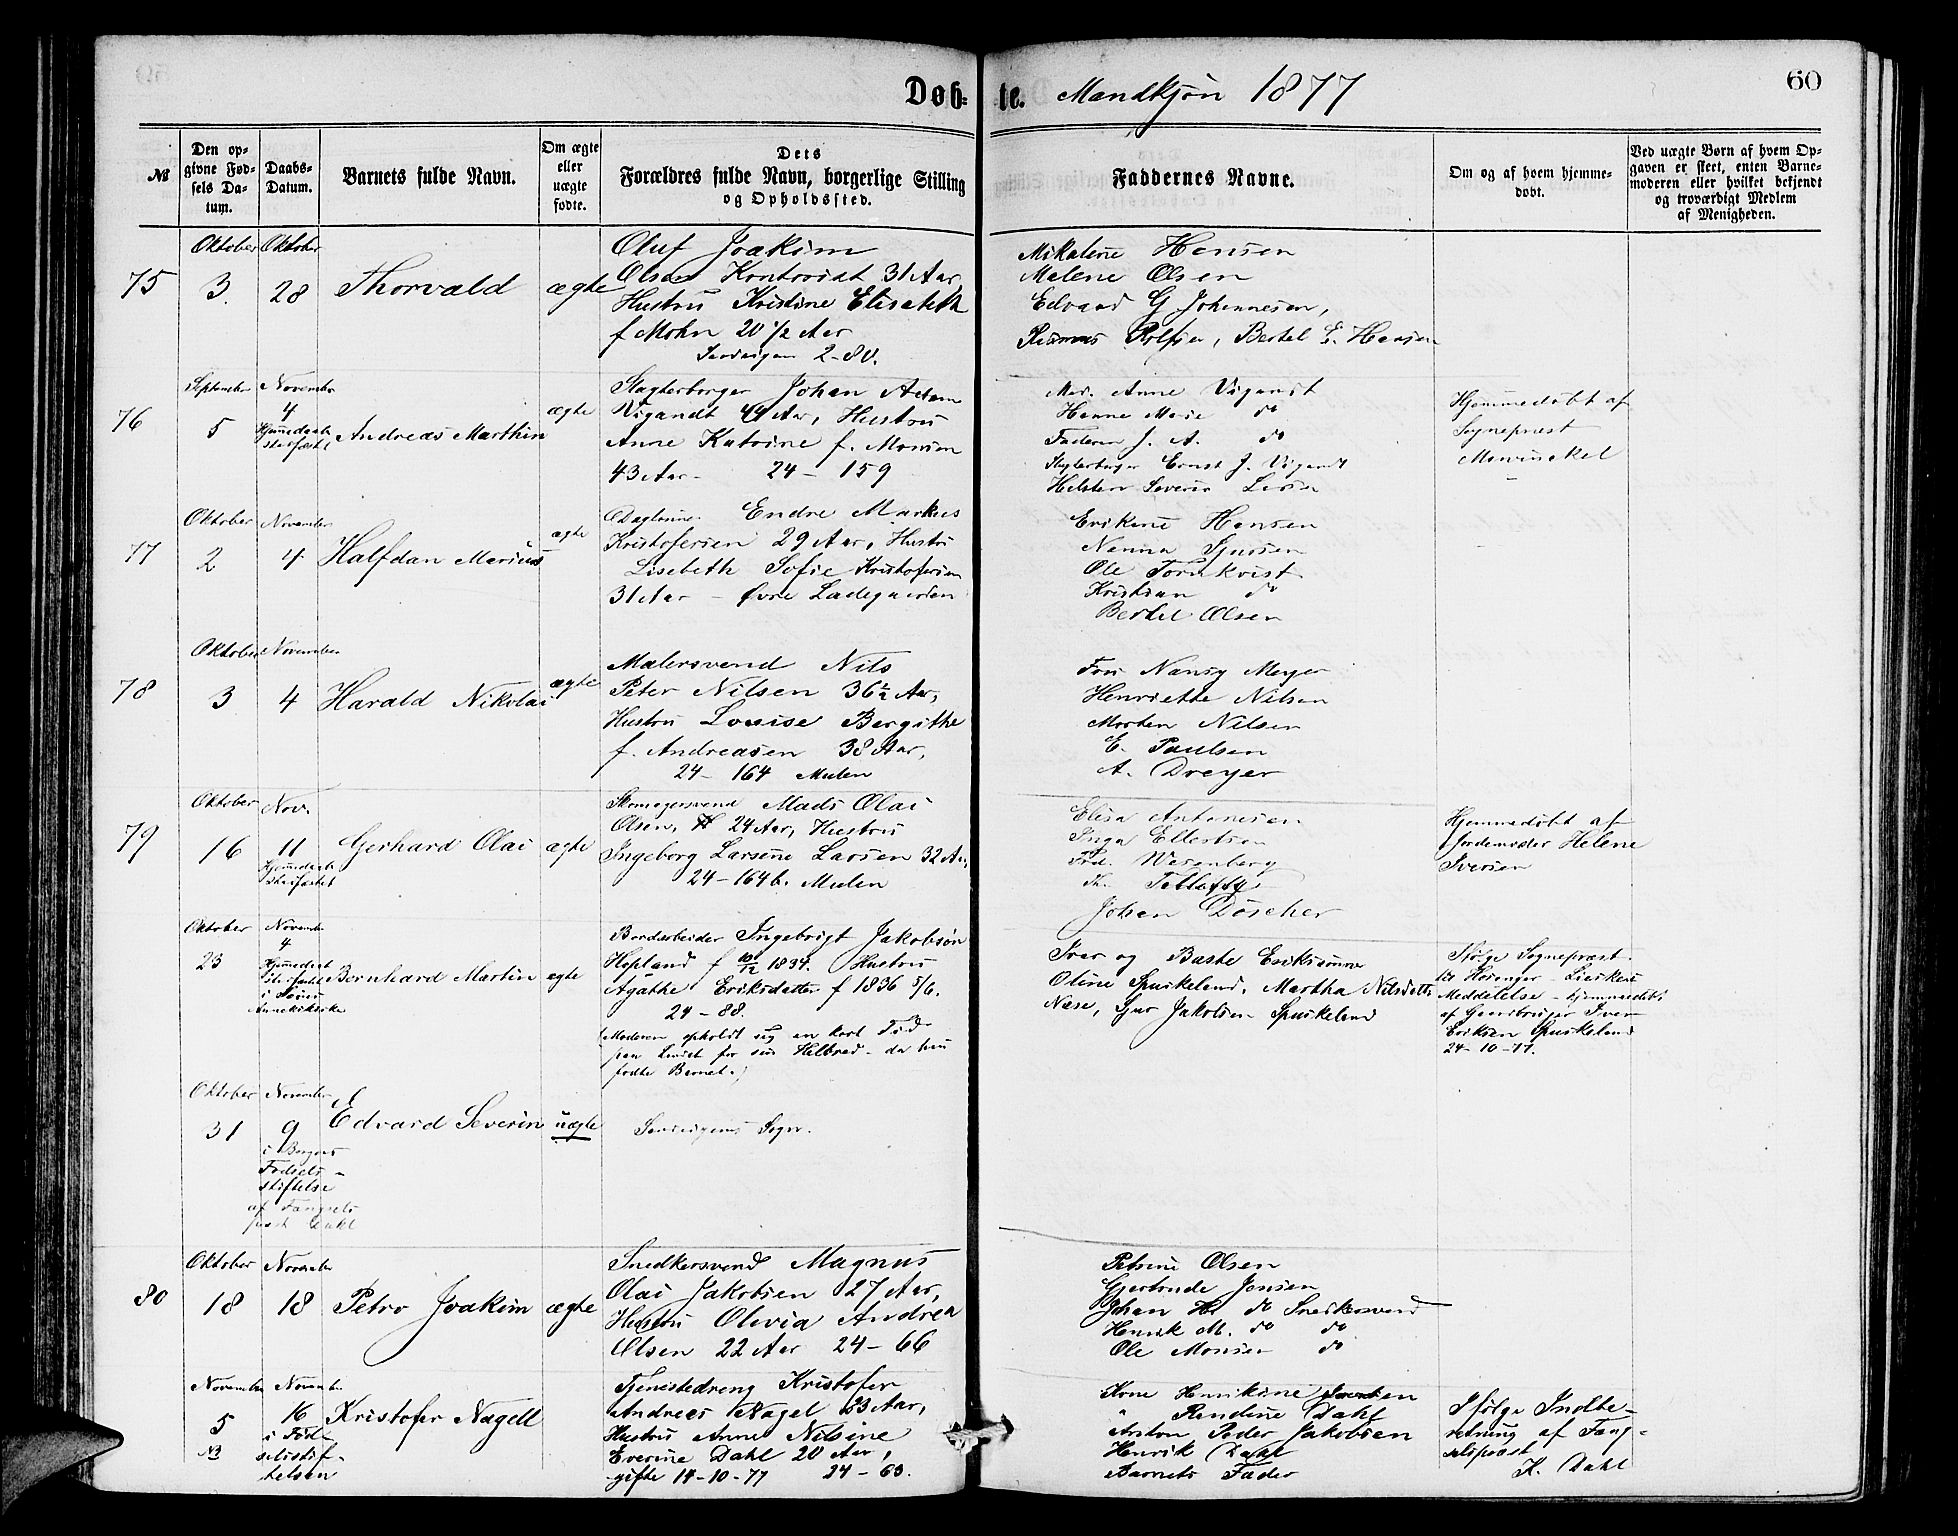 Døb- te. Mandkjøn 1877
60
№
Den op-
givne Fød-
sels Da-
tum.
Daabs-
Datum.
Barnets fulde Navn.
Om ægte
eller
uægte
fødte.
Dets
Forældres fulde Navn, borgerlige Stilling
og Opholdssted.
Faddernes Navne.
Om og af hvem hjemme-
døbt.
Ved uægte Børn af hvem Op-
gaven er skeet, enten Barne-
moderen eller hvilket bekjendt
og troværdigt Medlem
af Menigheden.
75
Oktober
3.
Oktober
28
Thorvald
ægte
Oluf Joakim
Olsen 31 Aar,
Hustru Kristine Elisabeth
f Mohn 20 1/2 Aar
2-80.
Mikaline Hansen
Malene Olsen
Edvard G Johannesen,
Rasmus Rolfsen, Bertel E. Hansen
76
September
5
November
4
Hjemmedaab
stadfæstet
Andreas Marthin
ægte
Slagterborger Johan Adam
Vigandt 44 Aar, Hustru
Anne Katrine f. Monsen
43 Aar - 24 - 159
Mad. Anne Vigandt
Hanne Marie do
Faderen J. A. do
Slagterborger Ernst J. Vigandt
Severin
Hjemmedøbt af
Sogneprest
Mowinckel
77
Oktober
2
November
4
Halfdan Marius
ægte
Dagleiner Endre Markus
Kristofersen 29 Aar, Hustru
Lisebeth Sofie Kristofersen
31 Aar - Øvre Ladegaarden
Erikine Hansen
Nanna Sjursen
Ole Tornkvist
Kristian do
Bertel Olsen
78
Oktober
3
November
4
Harald Nikolai
ægte
Malersvend Nils
Peter Nilsen 36 1/2 Aar,
Hustru Louise Bergithe
f. Andreasen 38 Aar,
24 - 164 Mulen
Fru Nansy Meyer
Henriette Nilsen
Morten Nilsen
E. Paulsen
A. Dreyer
79
Oktober
16
Nov.
11
Hjemmedaab
stadfæstet
Gerhard Olai
ægte
Skomagersvend Mads Olai
Olsen, 24 Aar, Hustru
Ingeborg Larsine Larsen 32 Aar,
24 - 164 b. Mulen
Elisa Antonisen
Inga Ellertsen
Fred. Wesenberg
Th.
Johan Döscher
Hjemmedøbt af
Jordemoder Helene
Iversen
Oktober
23
November
4
Hjemmedaab
stadfæstet
i
Annekskirke
Bernhard Martin
ægte
Bordarbeider Ingebrigt Jakobsøn
Hopland f 10/12 1834. Hustru
Agathe Eriksdatter f 1836 5/6.
24 - 88.
(Moderen opholdt sig en kort Tid
paa Landet for sin Helbred - da hun
fødte Barnet.)
Iver og Baste Erikssønner
Oline Spurkeland, Martha Nilsdatter
Næse, Sjur Jakobsen Spurkeland
Ifølge Sognepræst
Meddelelse - hjemmedøbt
af Gaardbruger Iver
Eriksen Spurkeland
24-10-77.
Oktober
31
November
9
i Bergens
Fødsels-
stiftelse
af Fængsels
præst Dahl
Edvard Severin
uægte
Sandvigens Sogn.
80
Oktober
18
November
18
Petro Joakim
ægte
Snedkersvend Magnus
Olai Jakobsen 27 Aar,
Hustru Olivia Andrea
Olsen 22 Aar 24 - 66
Petrine Olsen
Gjertrude Jensen
Johan Hr do Snedkersvend
Henrik M. do do
Ole Monsen do
November
5
November
16
i Fød-
selsstif-
telsen
Kristofer Nagell
Tjenestedreng Kristofer
Andreas Nagel 23 Aar,
Hustru Anne Nilsine
Everine Dahl 20 Aar,
gifte 14-10-77 24 - 63.
Kone Henrikine
" Rendine Dahl
Anton Peder Jakobsen
Henrik Dahl
Barnets Fader
Ifølge Indbe-
retning af Fæng-
selspræst
K. Dahl